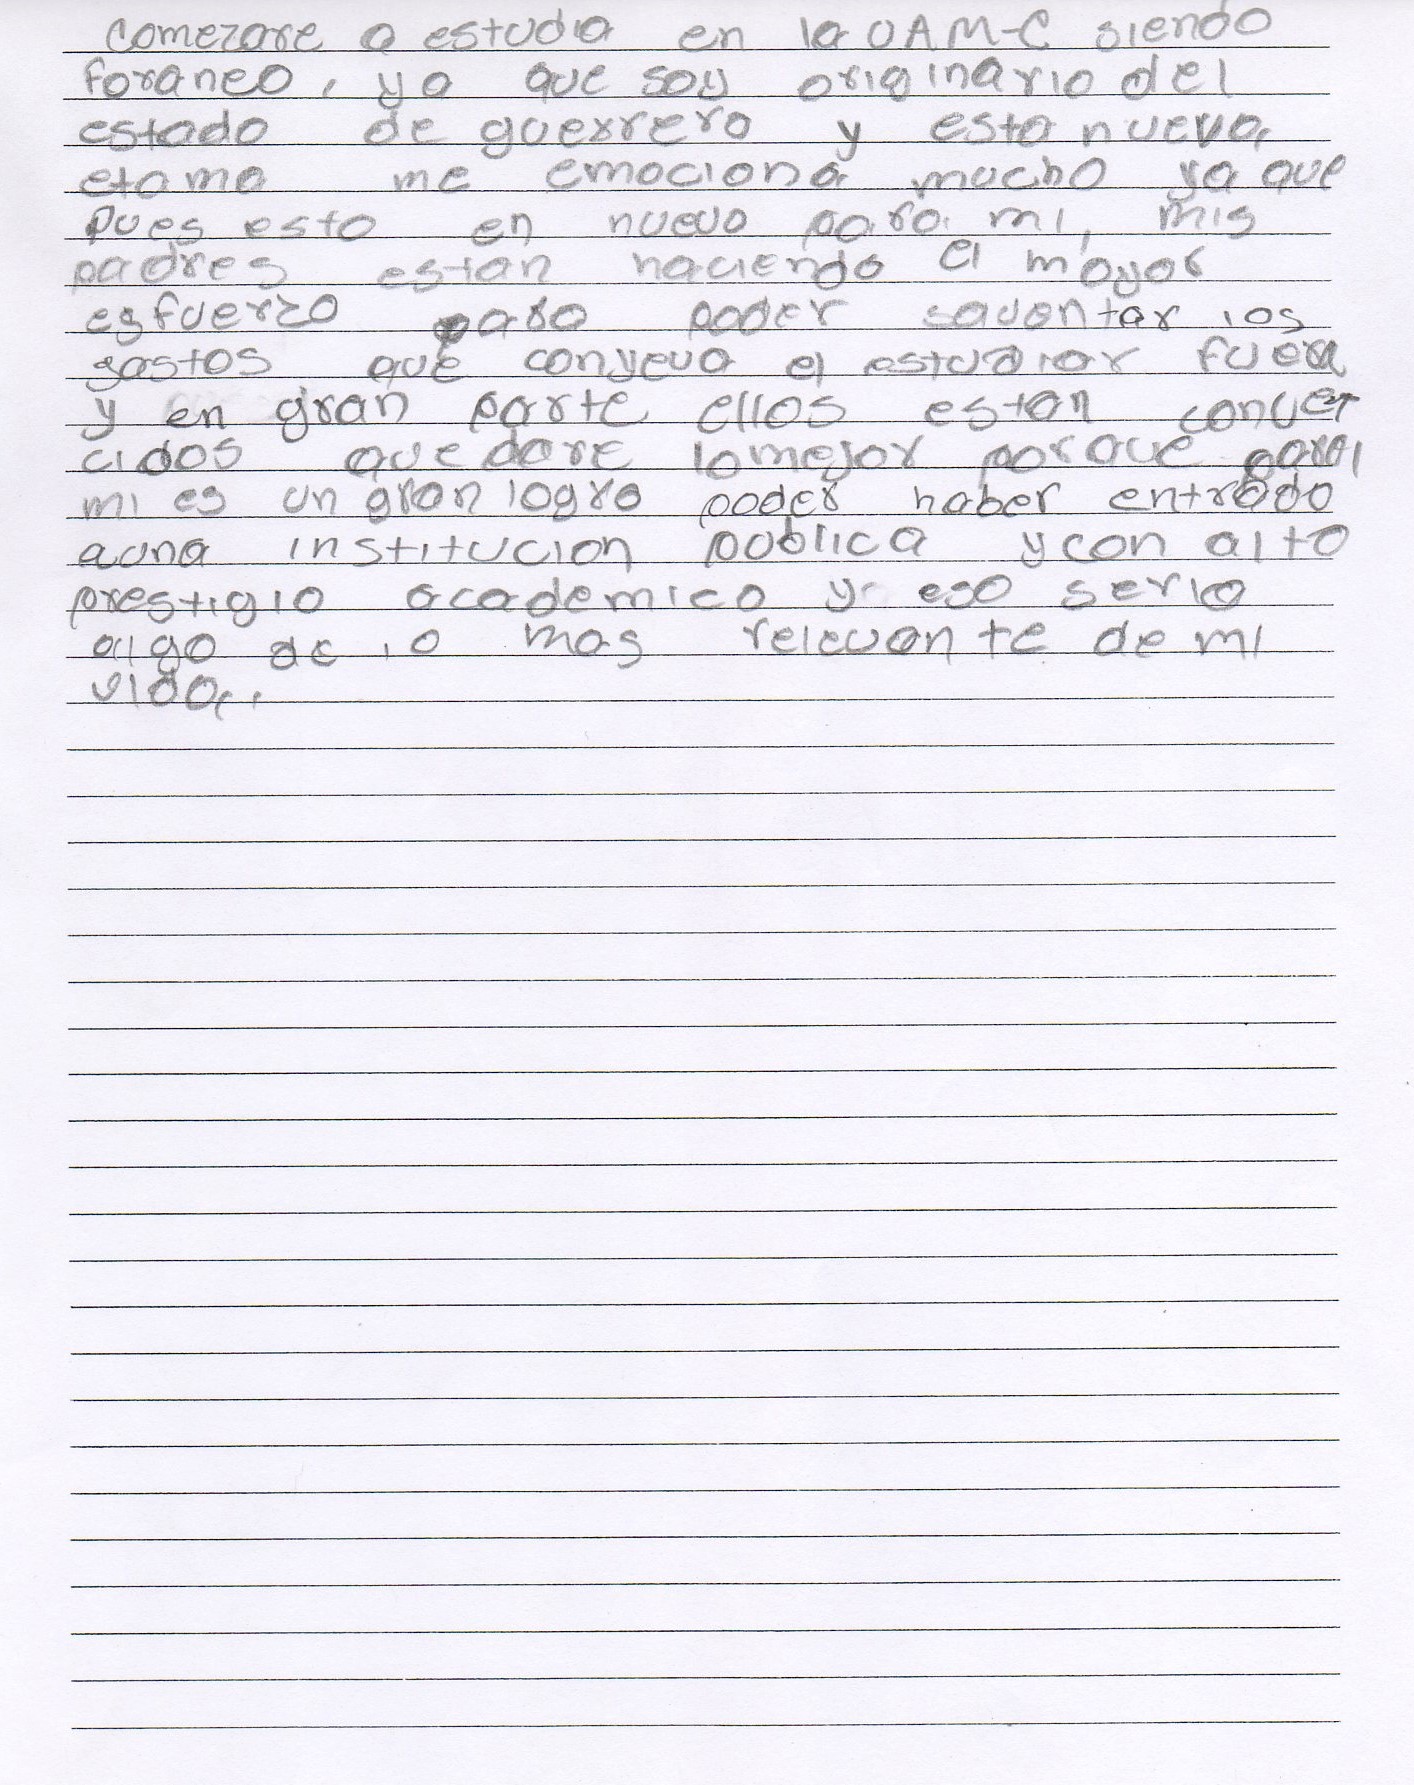 comezare a estudia en la UAM-C siendo
foraneo, ya que soy originario del
estado de guerrero y esta nueva
etama me emociona mucho ya que
pues esto en nuevo para mi, mis
padres estan haciendo el mayor
esfuerzo para poder saventar los
gastos que conyeva el estudiar fuera
y en gran parte ellos estan conven
cidos que dare lo mejor porque para
mi es un gran logro poder haber entrado
a una institucion publica y con alto
prestigio academico y eso seria
algo de lo mas relevante de mi
vida.